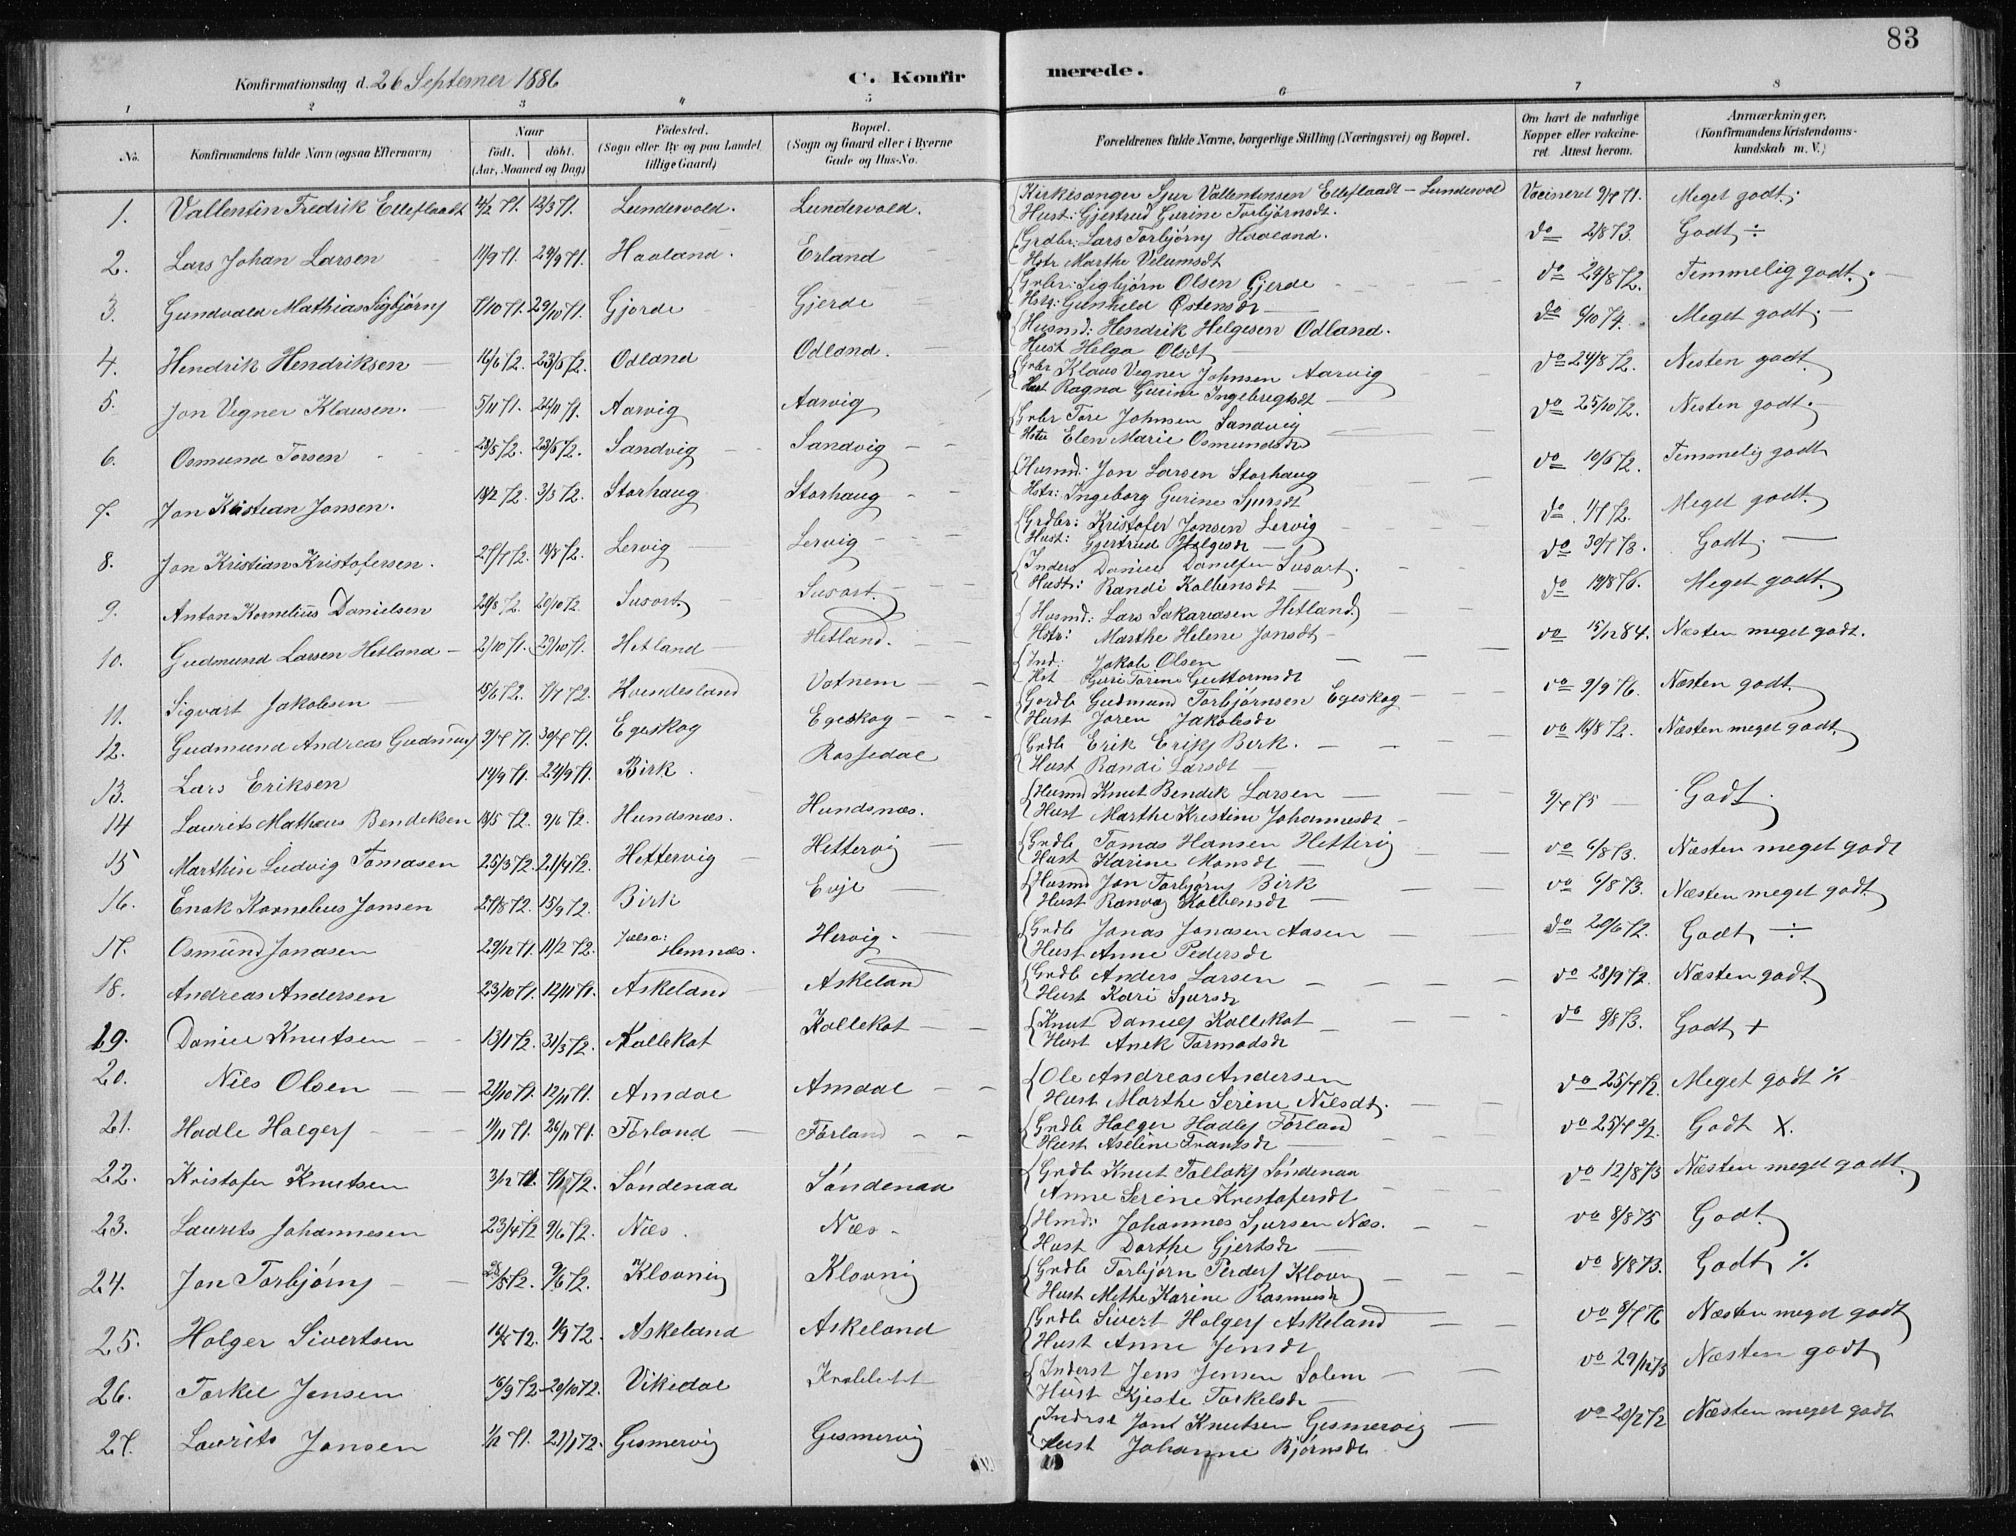 83
Konfirmationsdag d. 26 Septemer 1886 C. Konfirmerede.
1 2 3 4 5 6 7 8
No. Konfirmandens fulde Navn (ogsaa Efternavn) Naar født. døbt. (Aar, Maaned og Dag) Fødested. (Sogn eller By og paa Landet tillige Gaard) Bopæl. (Sogn og Gaard eller i Byerne Gade og Hus-No. Forældrenes fulde Navne, borgerlige Stilling (Næringsvei) og Bopæl. Om havt de naturlige Kopper eller vakcineret. Attest herom. Anmærkninger. (Konfirmandens Kristendomskundskab m. V.)
1. Vallentin Fredrik Elleflaadt 12/3 71. Lundervold. Lundervold. Kirkesanger Sjur Vallentinsen Elleflaadt - Lundervold Vacineret 9/7 71. Meget godt.
Hust: Gjertrud Gurine Torbjørnsdt.
2. Lars Johan Larsen 11/9 71. 24/9 71. Haaland. Erland Grdbr: Lars Torbjørns Haaland. do 2/8 73. Godt ÷
Hstr Marthe Vilumsdt
3. Gundvald Mathias Sigbjørns 7/10 71. 29/10 71. Gjerde Gjerde Grbr: Sigbjørn Olsen Gjerde do 24/8 72. Temmelig godt.
Hstr: Gunhild Østensdt
4. Hendrik Hendriksen 16/6 72. 23/6 72. Odland Odland. Husmd: Hendrik Helgesen Odland. do 6/10 74. Meget godt.
Hust Helga Olsdt
5. Jon Vegner Klausen. 5/11 71. 26/11 71. Aarvig Aarvig Grbr Klaus Vegner Johnsen Aarvig do 24/8 72. Nesten godt
Hust Ragna Gurine Ingebregtsdt
6. Osmund Torsen 29/5 72. 23/6 72. Sandvig Sandvig Grbr Tore Johnsen Sandvig do 25/10 72. Nesten godt.
Hstr Elen Marie Osmundsdt
7. Jon Kristian Jonsen. 18/2 72. 3/3 72. Storhaug Storhaug Husmd: Jon Larsen Storhaug do 10/6 72. Temmelig godt
Hstr: Ingeborg Gurine Sjursdt
8. Jon Kristian Kristofersen. 27/7 72. 18/8 72. Lervig Lervig Grdbr: Kristofer Jonsen Lervig do 1/7 72. Meget godt.
Hust: Gjertrud Helgesdt
9. Anton Kornelius Danielsen 28/8 72. 20/10 72. Susort. Susort. Inders Daniel Susort. do 30/7 78. Godt.
Hust: Randi Kolbensdt
10. Gudmund Larsen Hetland 2/10 71. 29/10 71. Hetland Hetland. Husmd: Lars Sakariasen Hetland do 19/8 76. Meget godt.
Hstr: Marthe Helene Jonsdt
11. Sigvart Jakobsen 15/6 72. 7/7 72. Kvendesland Vatnem Ind: Jakob Olsen do 15/12 84. Næsten meget godt.
Hst Guri Torine Guttormsdt
12. Gudmund Andreas Gudmuns 9/4 71. 30/4 71. Egeskog Egeskog Gerdb Gudmund Torbjørnsen Egeskog do 9/9 76. Næsten godt.
Hust Joren Jakobsdt
13. Lars Eriksen 14/9 71. 24/9 71. Birk. Rossedal Grdb Erik Eriks Birk. do 16/8 72. Næsten meget godt
Hust Randi Larsdt
14 Laurits Matheus Bendeksen 18/5 72. 9/6 72. Hundsnæs. Hundsnæs. Husmd Knut Bendik Larsen 9/7 75 Godt.
Hust Marthe Kristine Johannesdt
15 Marthin Ludvig Tomasen 25/3 72. 21/4 72. Hettervig Hettervig Grdb Tomas Hansen Hettervig do 6/8 73. Næsten meget godt
Hust Karine Monsdt
16. Enok Kornelius Jonsen 27/8 72. 15/9 72. Birk Evje Husmd Jon Torbjørns Birk do 6/8 73. Næsten meget godt
Hust Ranvei Kolbensdt
17. Osmund Jonasen 29/12 71. 11/2 72. Jælsø: Hemnæs. Hervig. Grdb Jonas Jonasen Aasen do 20/6 72. Godt ÷
Hust Anne Pedersdt
18. Andreas Andersen 23/10 71. 12/11 71. Askeland Askeland Grdb Anders Larsen do 28/9 72. Næsten godt.
Hust Kari Sjursdt
19. Daniel Knutsen 13/1 72. 31/3 72. Kallekot Kallekot Knut Daniels Kallekot do 8/8 73. Godt +
Hust Anek Tormodsdt
20. Nils Olsen 21/10 71. 12/11 71. Amdal Amdal Ole Andreas Andersen do 25/7 72. Meget godt %
Hust Marthe Serine Nilsdt.
21. Hadle Holgers 1/11 71. 26/11 71. Førland Førland Grdb Holger Hadles Førland do 25/7 Godt X.
Hust Aseline Frantsdt
22. Kristofer Knutsen 3/12 71. 7/1 72. Søndenaa Søndenaa Grdb Knut Tollaks Søndenaa do 12/8 73 Næsten meget godt.
Anne Serine Kristofersdt
23. Laurits Johannesen 23/4 72 9/6 72. Næs. Næs. Hmd: Johannes Sjursen Næs. do 8/8 75 Godt.
Hust Dorthe Gjertsdt
24. Jon Torbjørns 28/5 72. 9/6 72. Klovnig Klovnig Grdb Torbjørn Peders Klovn do 8/8 73. Godt %
Hust Methe Karine Rasmusdt
25. Holger Sivertsen 72. 1/9 72. Askeland Askeland Grdb Sivert Holgers Askeland do 8/7 76 Næsten meget godt
Hust Anne Jensdt
26. Torkel Jensen 16/9 72 20/10 72. Vikedal Inderst Jens Jensen Solem do 29/12 73 Næsten godt
Hust Kjeste Torkelsdt
27. Laurits Jonsen 1/12 71. 21/1 72. Gismervig Gismervig Inderst Jont Knutsen Gismervig do 20/2 72 Næsten meget godt
Hust Johanne Bjørnsdt